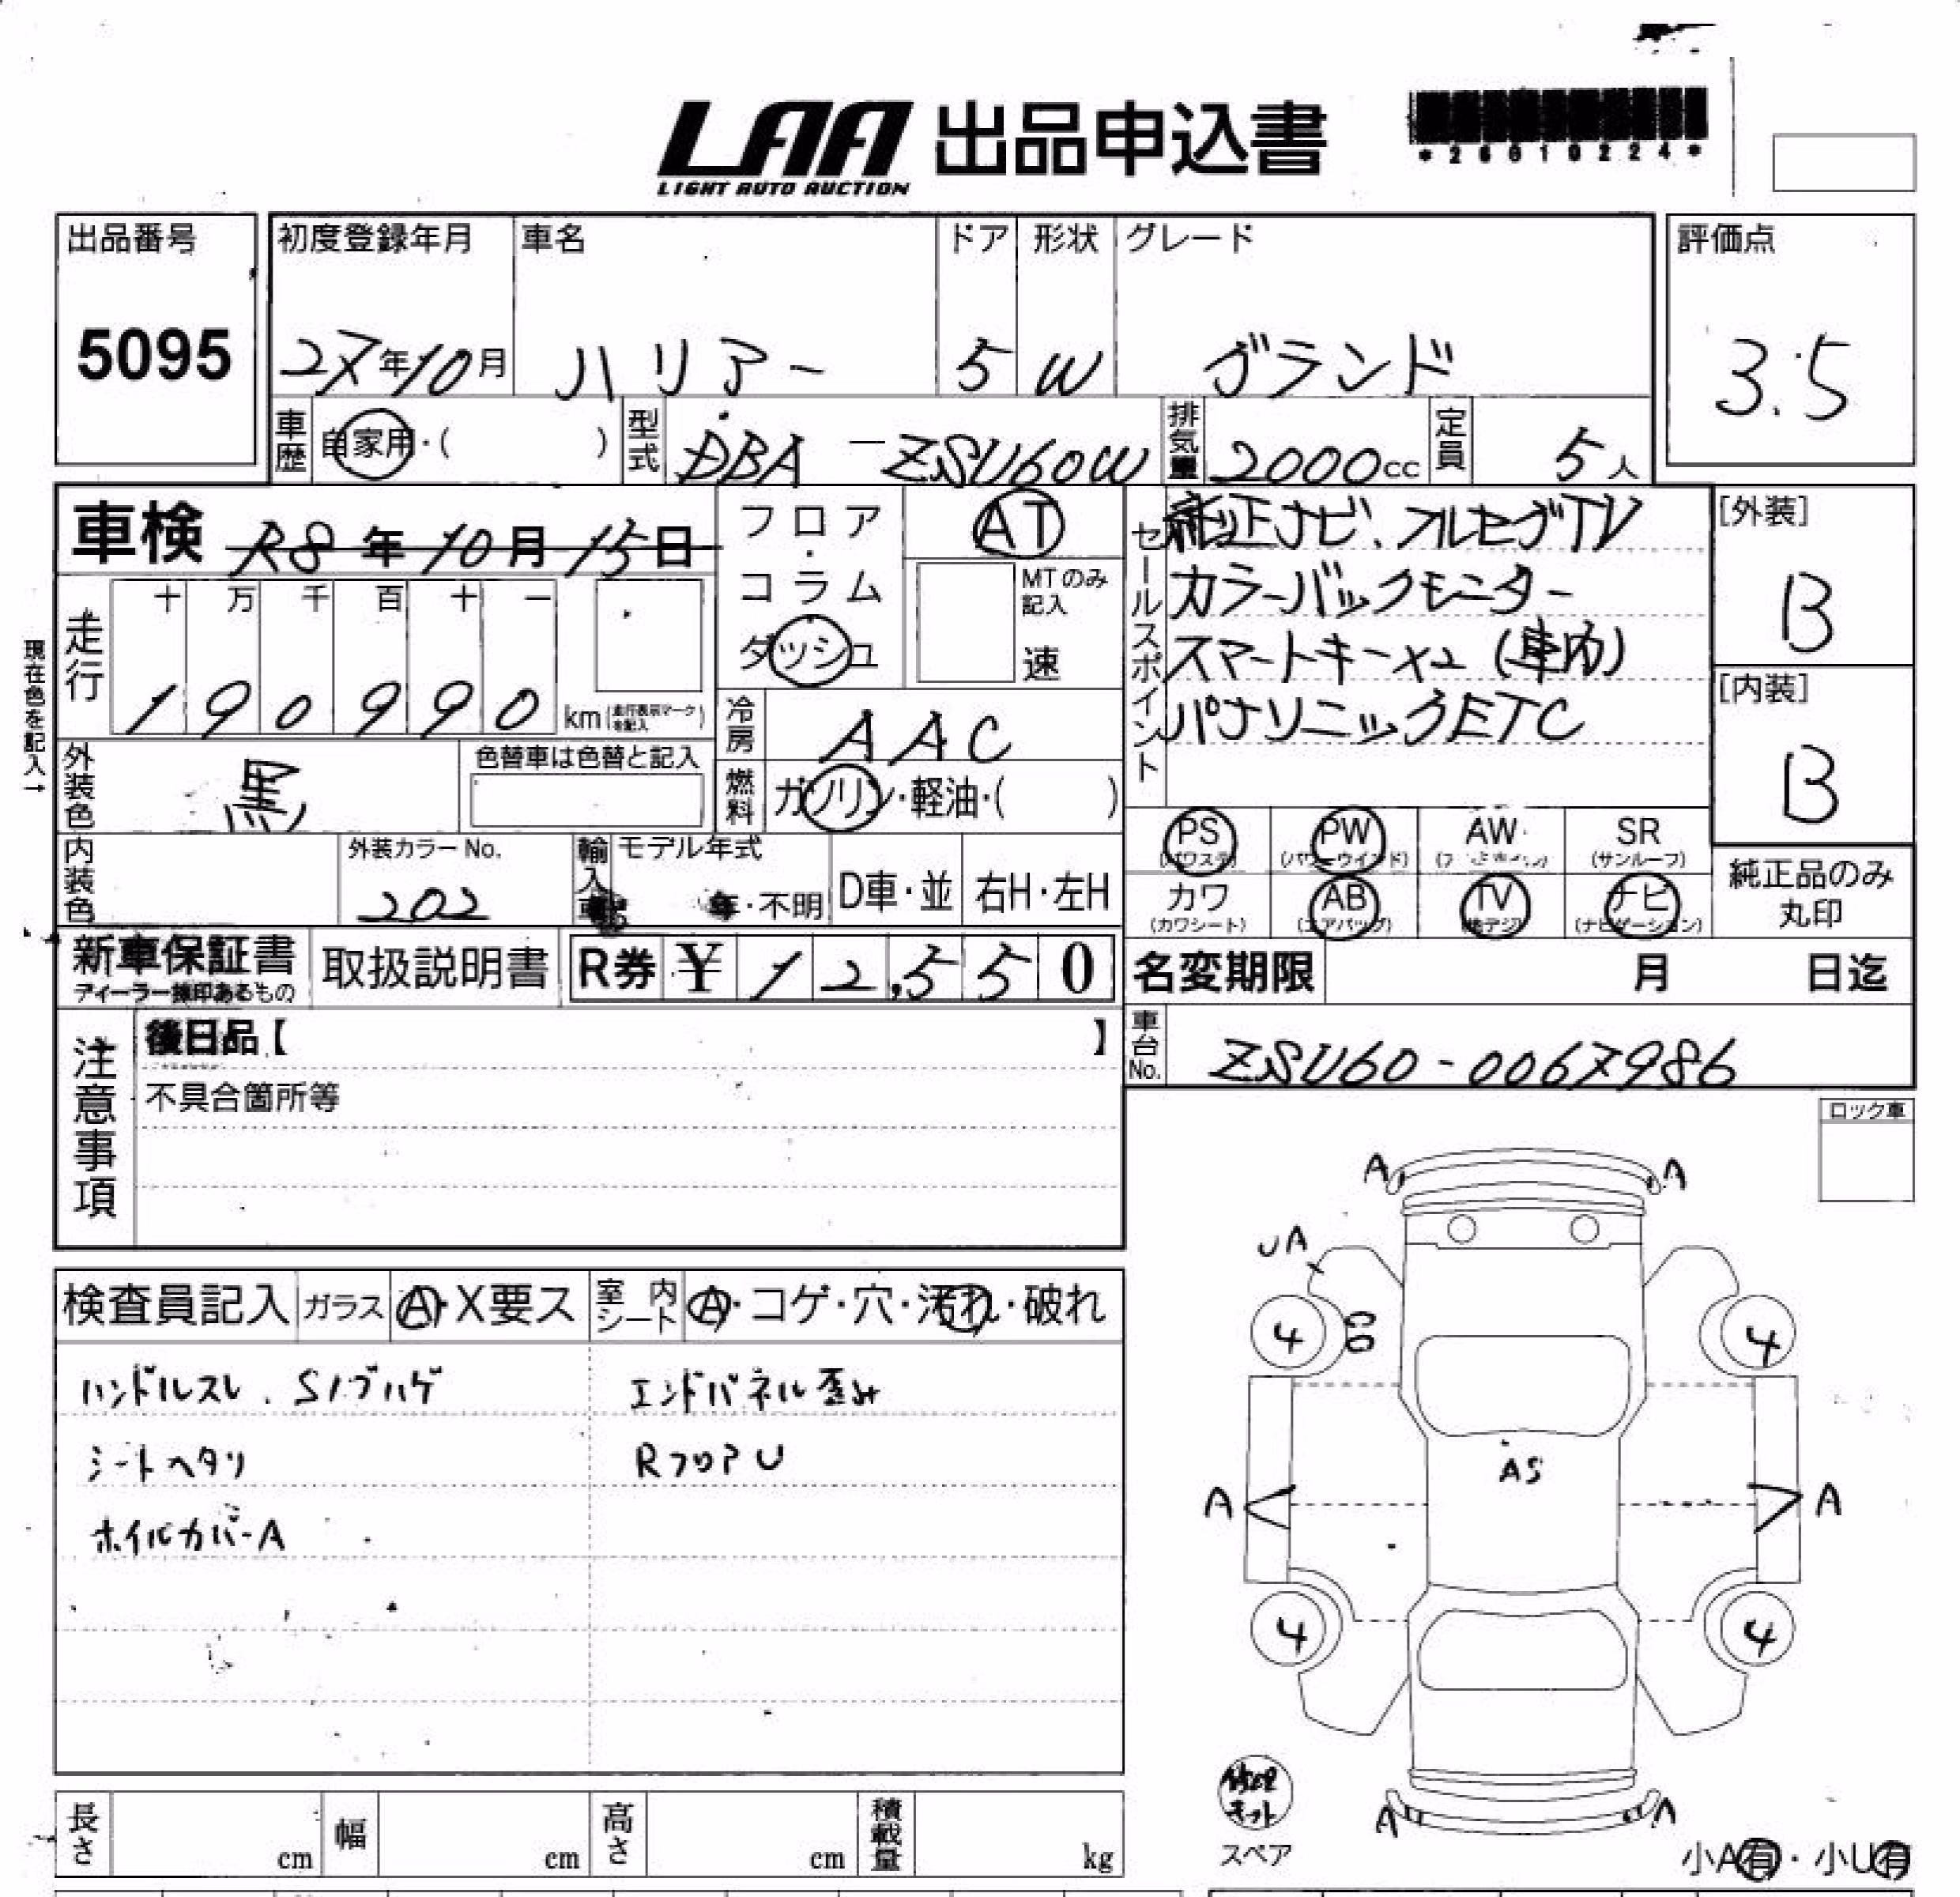 LAA 出品申込書
LIGHT AUTO AUCTION
*26610224*
出品番号
5095
初度登録年月 車名 ドア 形状 グレード
27年10月 ハリアー 5 W グランド
評価点
3.5
車歴 自家用・( ) 型式 DBA-ZSU60W 排気量 2000cc 定員 5人
車検 R8年10月15日
フロア・コラム ダッシュ
AT
MTのみ記入
速
セールスポイント
純正ナビ、フルセグTV
カラーバックモニター
スマートキー×2 (車内)
パナソニックETC
[外装]
B
[内装]
B
現在色を記入→
走行
十 万 千 百 十 一
190990 km (走行表示マークを記入)
冷房 AAC
燃料 ガソリン・軽油・( )
外装色 黒
色替車は色替と記入
内装色
外装カラーNo.
202
輸入車 モデル年式
年・不明 D車・並 右H・左H
PS (パワステ) PW (パワーウインド) AW SR (サンルーフ)
カワ (カワシート) AB (エアバッグ) TV (地デジ) ナビ (ナビゲーション)
純正品のみ丸印
新車保証書
ディーラー捺印あるもの
取扱説明書
R券 ¥12,550
名変期限 月 日迄
注意事項
後日品【 】
不具合箇所等
車台No. ZSU60-0067986
ロック車
検査員記入 ガラス A・X要ス 室内シート A・コゲ・穴・汚れ・破れ
ハンドルスレ、Sノブハゲ エンドパネル歪み
シートヘタリ RフロアU
ホイルカバーA
A A
UA
4 4
AS
A A
4 4
修理キット
スペア
A A
小A有・小U有
長さ cm 幅 cm 高さ cm 積載量 kg